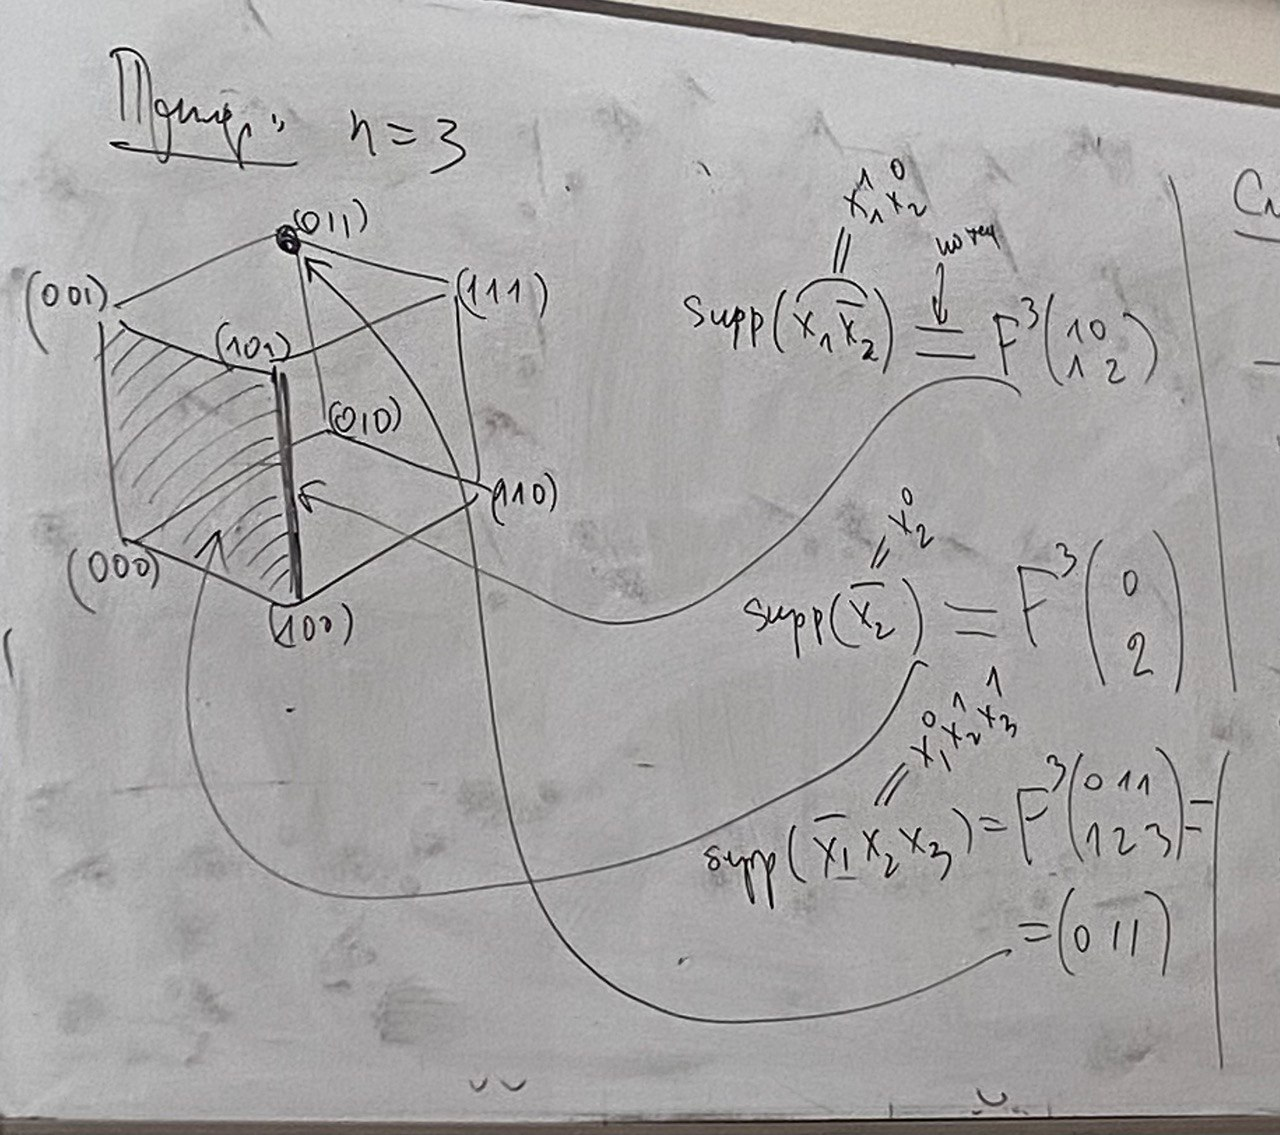 n = 3
(011)
(001)
(111)
(101)
(010)
(110)
(000)
(100)
x₁¹x₂⁰
||
supp(x₁x̄₂) = F³(1 0
1 2)
x₂⁰
||
supp(x̄₂) = F³(0
2)
x₁⁰x₂¹x₃¹
||
supp(x̄₁x₂x₃) = F³(0 1 1
1 2 3) =
= (0 1 1)